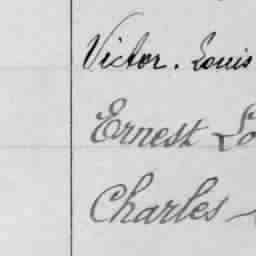 Victor. Louis
Ernest Lo
Charles